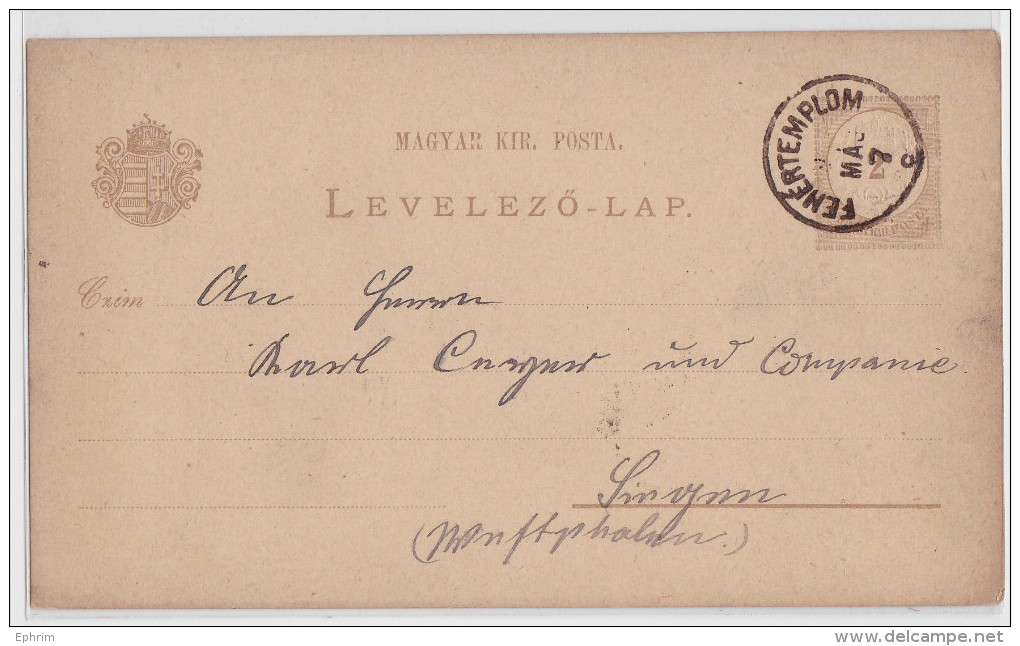 MAGYAR KIR. POSTA.
LEVELEZŐ-LAP.
FEHÉRTEMPLOM
MÁ
7
3
2
Czim An Herrn
Karl und Companie.
Siegen
(Westphalen.)
Ephrim
www.delcampe.net